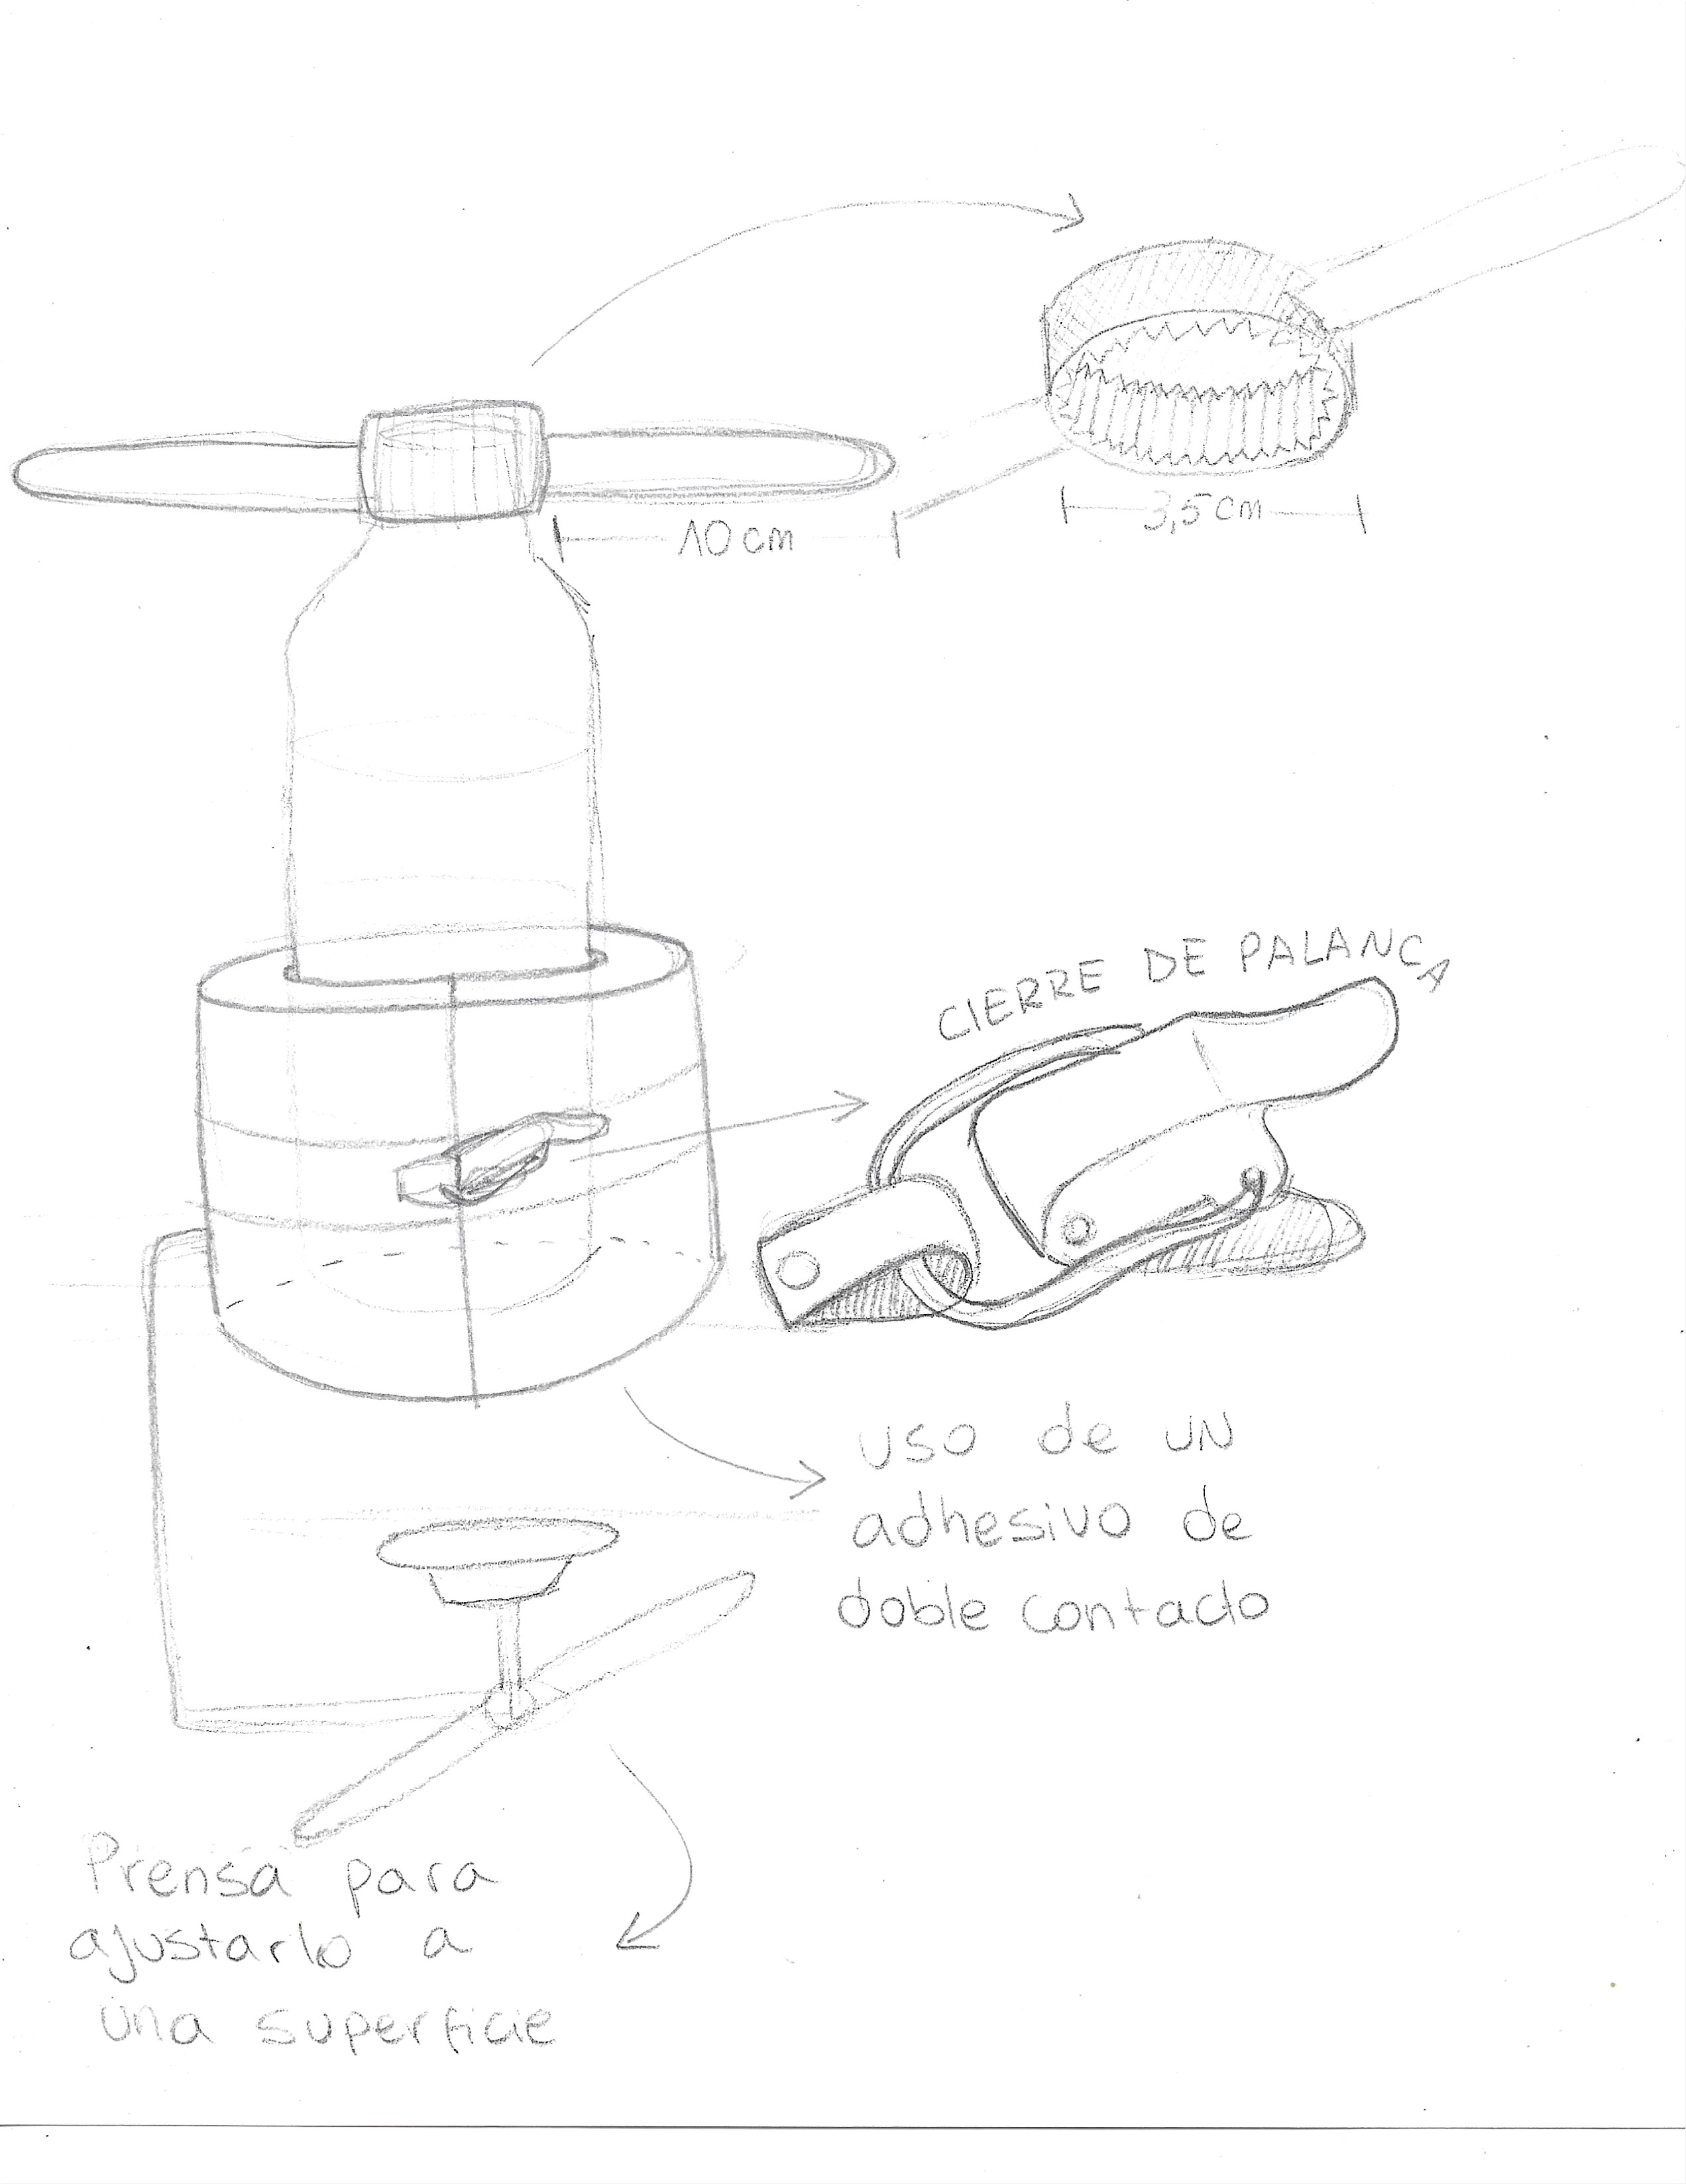 3,5 cm
10 cm
CIERRE DE PALANCA
uso de un
adhesivo de
doble contacto
Prensa para
ajustarlo a
una superficie